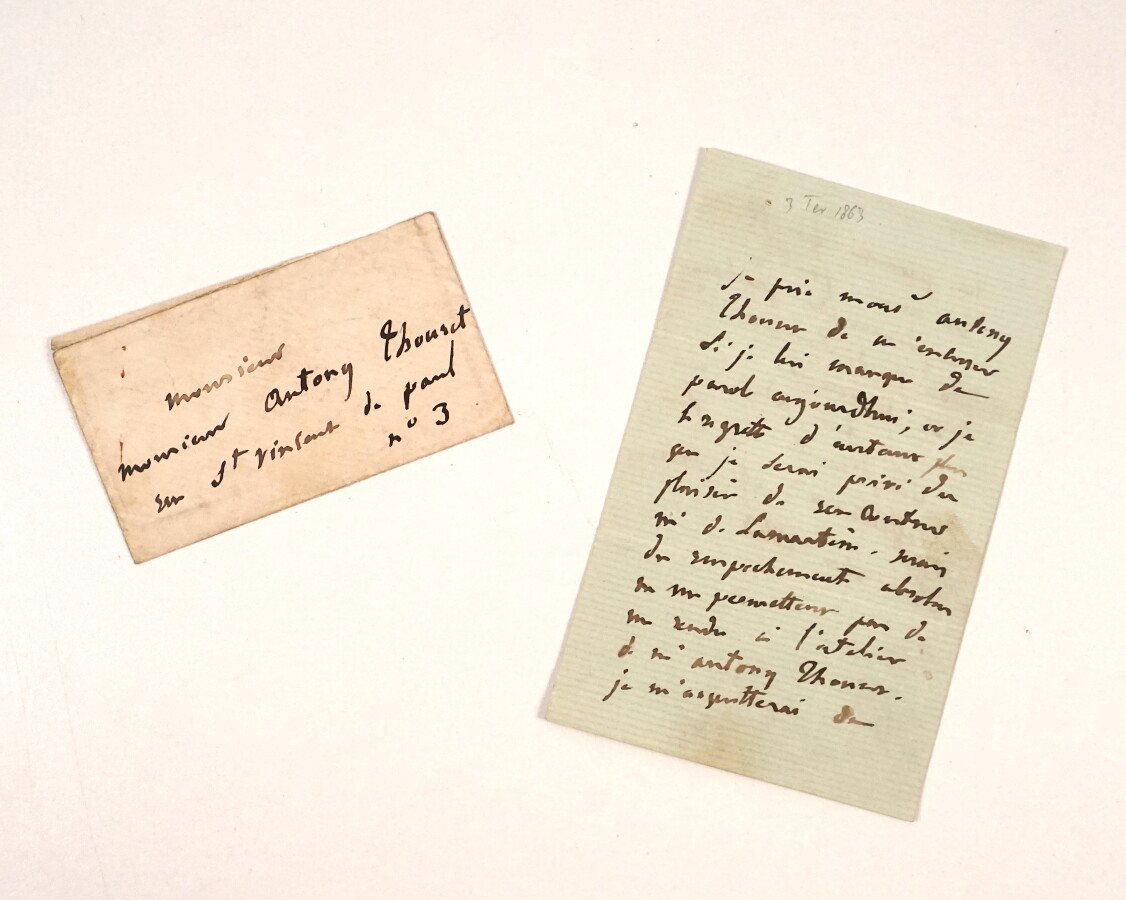 monsieur
monsieur antony thouret
rue St vincent de paul
n° 3
3 Fev 1863
je prie mons^r antony
Thouret de m'excuser
si je lui manque de
parole aujourdhui; et je
le regrette d'autant plus
que je serai privé du
plaisir de rencontrer
m^r de Lamartine. mais
des empechements absolus
ne me permettent pas de
me rendre à l'atelier
de m^r antony Thouret.
je m'acquitterai de